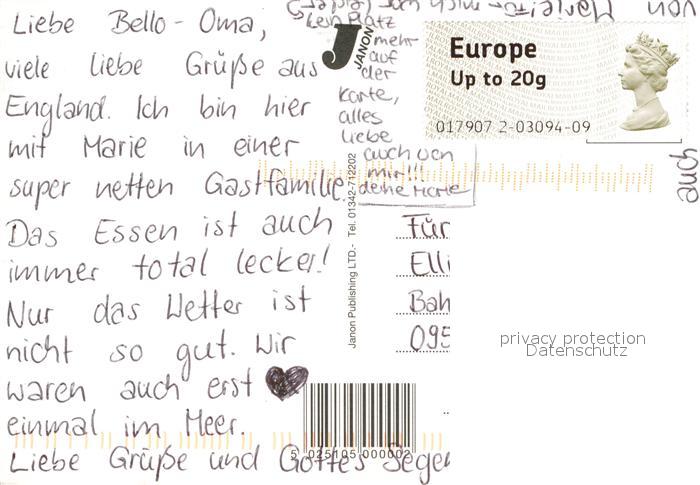 Liebe Bello-Oma,
viele liebe Grüße aus
England. Ich bin hier
mit Marie in einer
super netten Gastfamilie.
Das Essen ist auch
immer total lecker!
Nur das Wetter ist
nicht so gut. Wir
waren auch erst
einmal im Meer.
Liebe Grüße und Gottes Segen
auch
von
kein Platz
mehr
auf
der
Karte,
alles
liebe
auch von
mir!!!
deine Marie
JANON
Janon Publishing LTD.- Tel. 01342-712202
Europe
Up to 20g
017907 2-03094-09
Für
Elli
Bah
095
privacy protection
Datenschutz
5 025105 000002